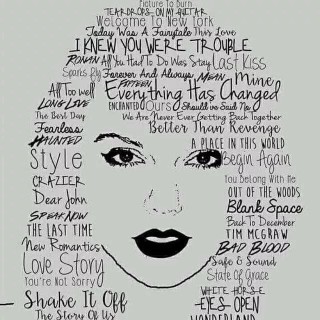 Picture To Burn
TEARDROPS ON MY GUITAR
Welcome To New York
Today Was A Fairytale This Love
I KNEW YOU WERE TROUBLE
RONAN All You Had To Do Was Stay Last Kiss
Sparks Fly Forever And Always MEAN Mine
FIFTEEN
All Too well Everything Has Changed
LONG LIVE ENCHANTED Ours Should've Said No
The Best Day We Are Never Ever Getting Back Together
Fearless Better Than Revenge
HAUNTED A PLACE IN THIS WORLD
Style Begin Again
CRAZIER You Belong With Me
Dear John OUT OF THE WOODS
SPEAK NOW Blank Space
THE LAST TIME Back To December
New Romantics TIM MCGRAW
Love Story BAD BLOOD
You're Not Sorry Safe & Sound
State Of Grace
Shake It Off WHITE HORSE
The Story Of Us EYES OPEN
WONDERLAND